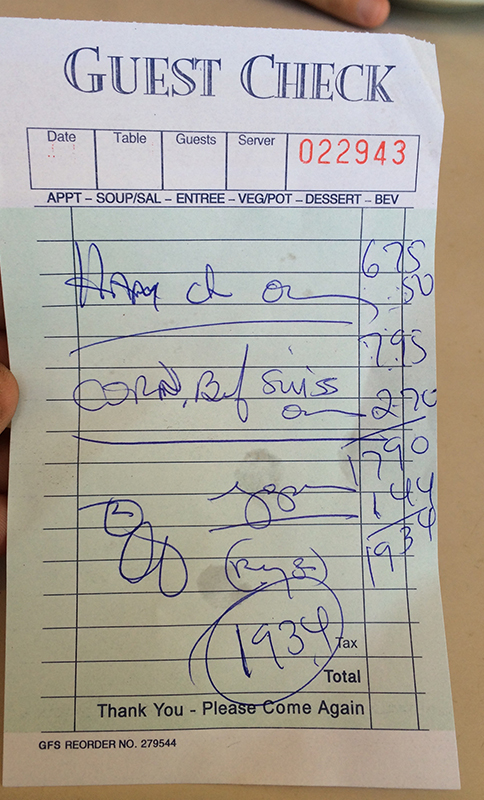 GUEST CHECK
Date Table Guests Server 022943
APPT – SOUP/SAL – ENTREE – VEG/POT – DESSERT – BEV
675
ch 50
795
CORN, Bef SWISS
270
1790
144
1934
1934
Tax
Total
Thank You - Please Come Again
GFS REORDER NO. 279544